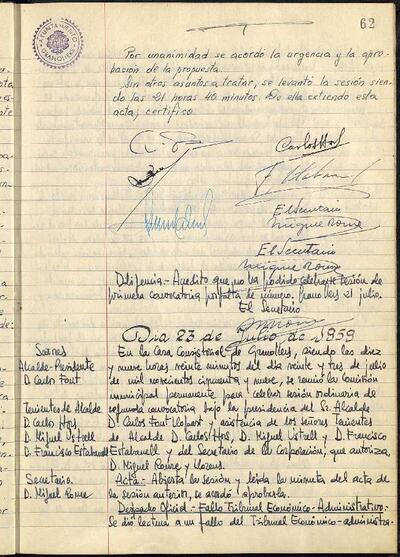 62
AYUNTAMIENTO
GRANOLLERS
Por unanimidad se acordó la urgencia y la apro-
bación de la propuesta.
Sin otros asuntos a tratar, se levantó la sesión sien-
do las 21 horas 40 minutos. De ella extiendo esta
acta; certifico
Carlos
El Secretario
Miguel Roure
El Secretario
Miguel Roure
Diligencia.- Acredito que no ha podido celebrarse sesión de
primera convocatoria por falta de número. Granollers 21 julio.
El Secretario
Día 23 de Julio de 1959
Señores
Alcalde-Presidente
D. Carlos Font
Tenientes de Alcalde
D. Carlos
D. Miguel
D. Francisco Estabanell
Secretario
D. Miguel Roure
En la Casa Consistorial de Granollers, siendo las diez
y nueve horas veinte minutos del día veinte y tres de julio
de mil novecientos cincuenta y nueve, se reunió la Comisión
municipal permanente para celebrar sesión ordinaria de
segunda convocatoria bajo la presidencia del Sr. Alcalde
D. Carlos Font Llopart y asistencia de los señores Tenientes
de Alcalde D. Carlos D. Miguel y D. Francisco
Estabanell y del Secretario de la Corporación, que autoriza,
D. Miguel Roure y
Acta.- Abierta la sesión y leída la minuta del acta de
la sesión anterior, se acordó aprobarla.
Despacho Oficial.- Fallo Tribunal Económico-Administrativo.-
Se dió lectura a un fallo del Tribunal Económico-administra-